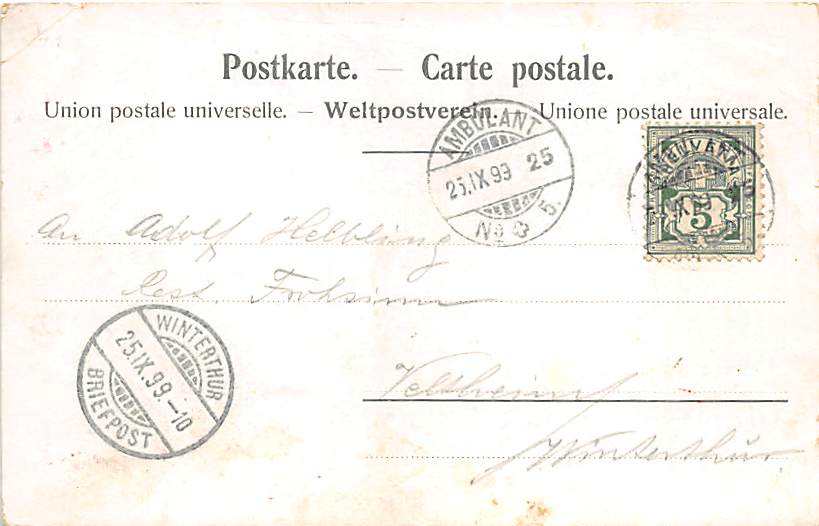 Postkarte. — Carte postale.
Union postale universelle. — Weltpostverein. Unione postale universale.
AMBULANT
25.IX 99 25
No 5.
5
An Adolf Helbling
Rest. Frohsinn
Veltheim
Winterthur
WINTERTHUR
25.IX.99.-10
BRIEFPOST